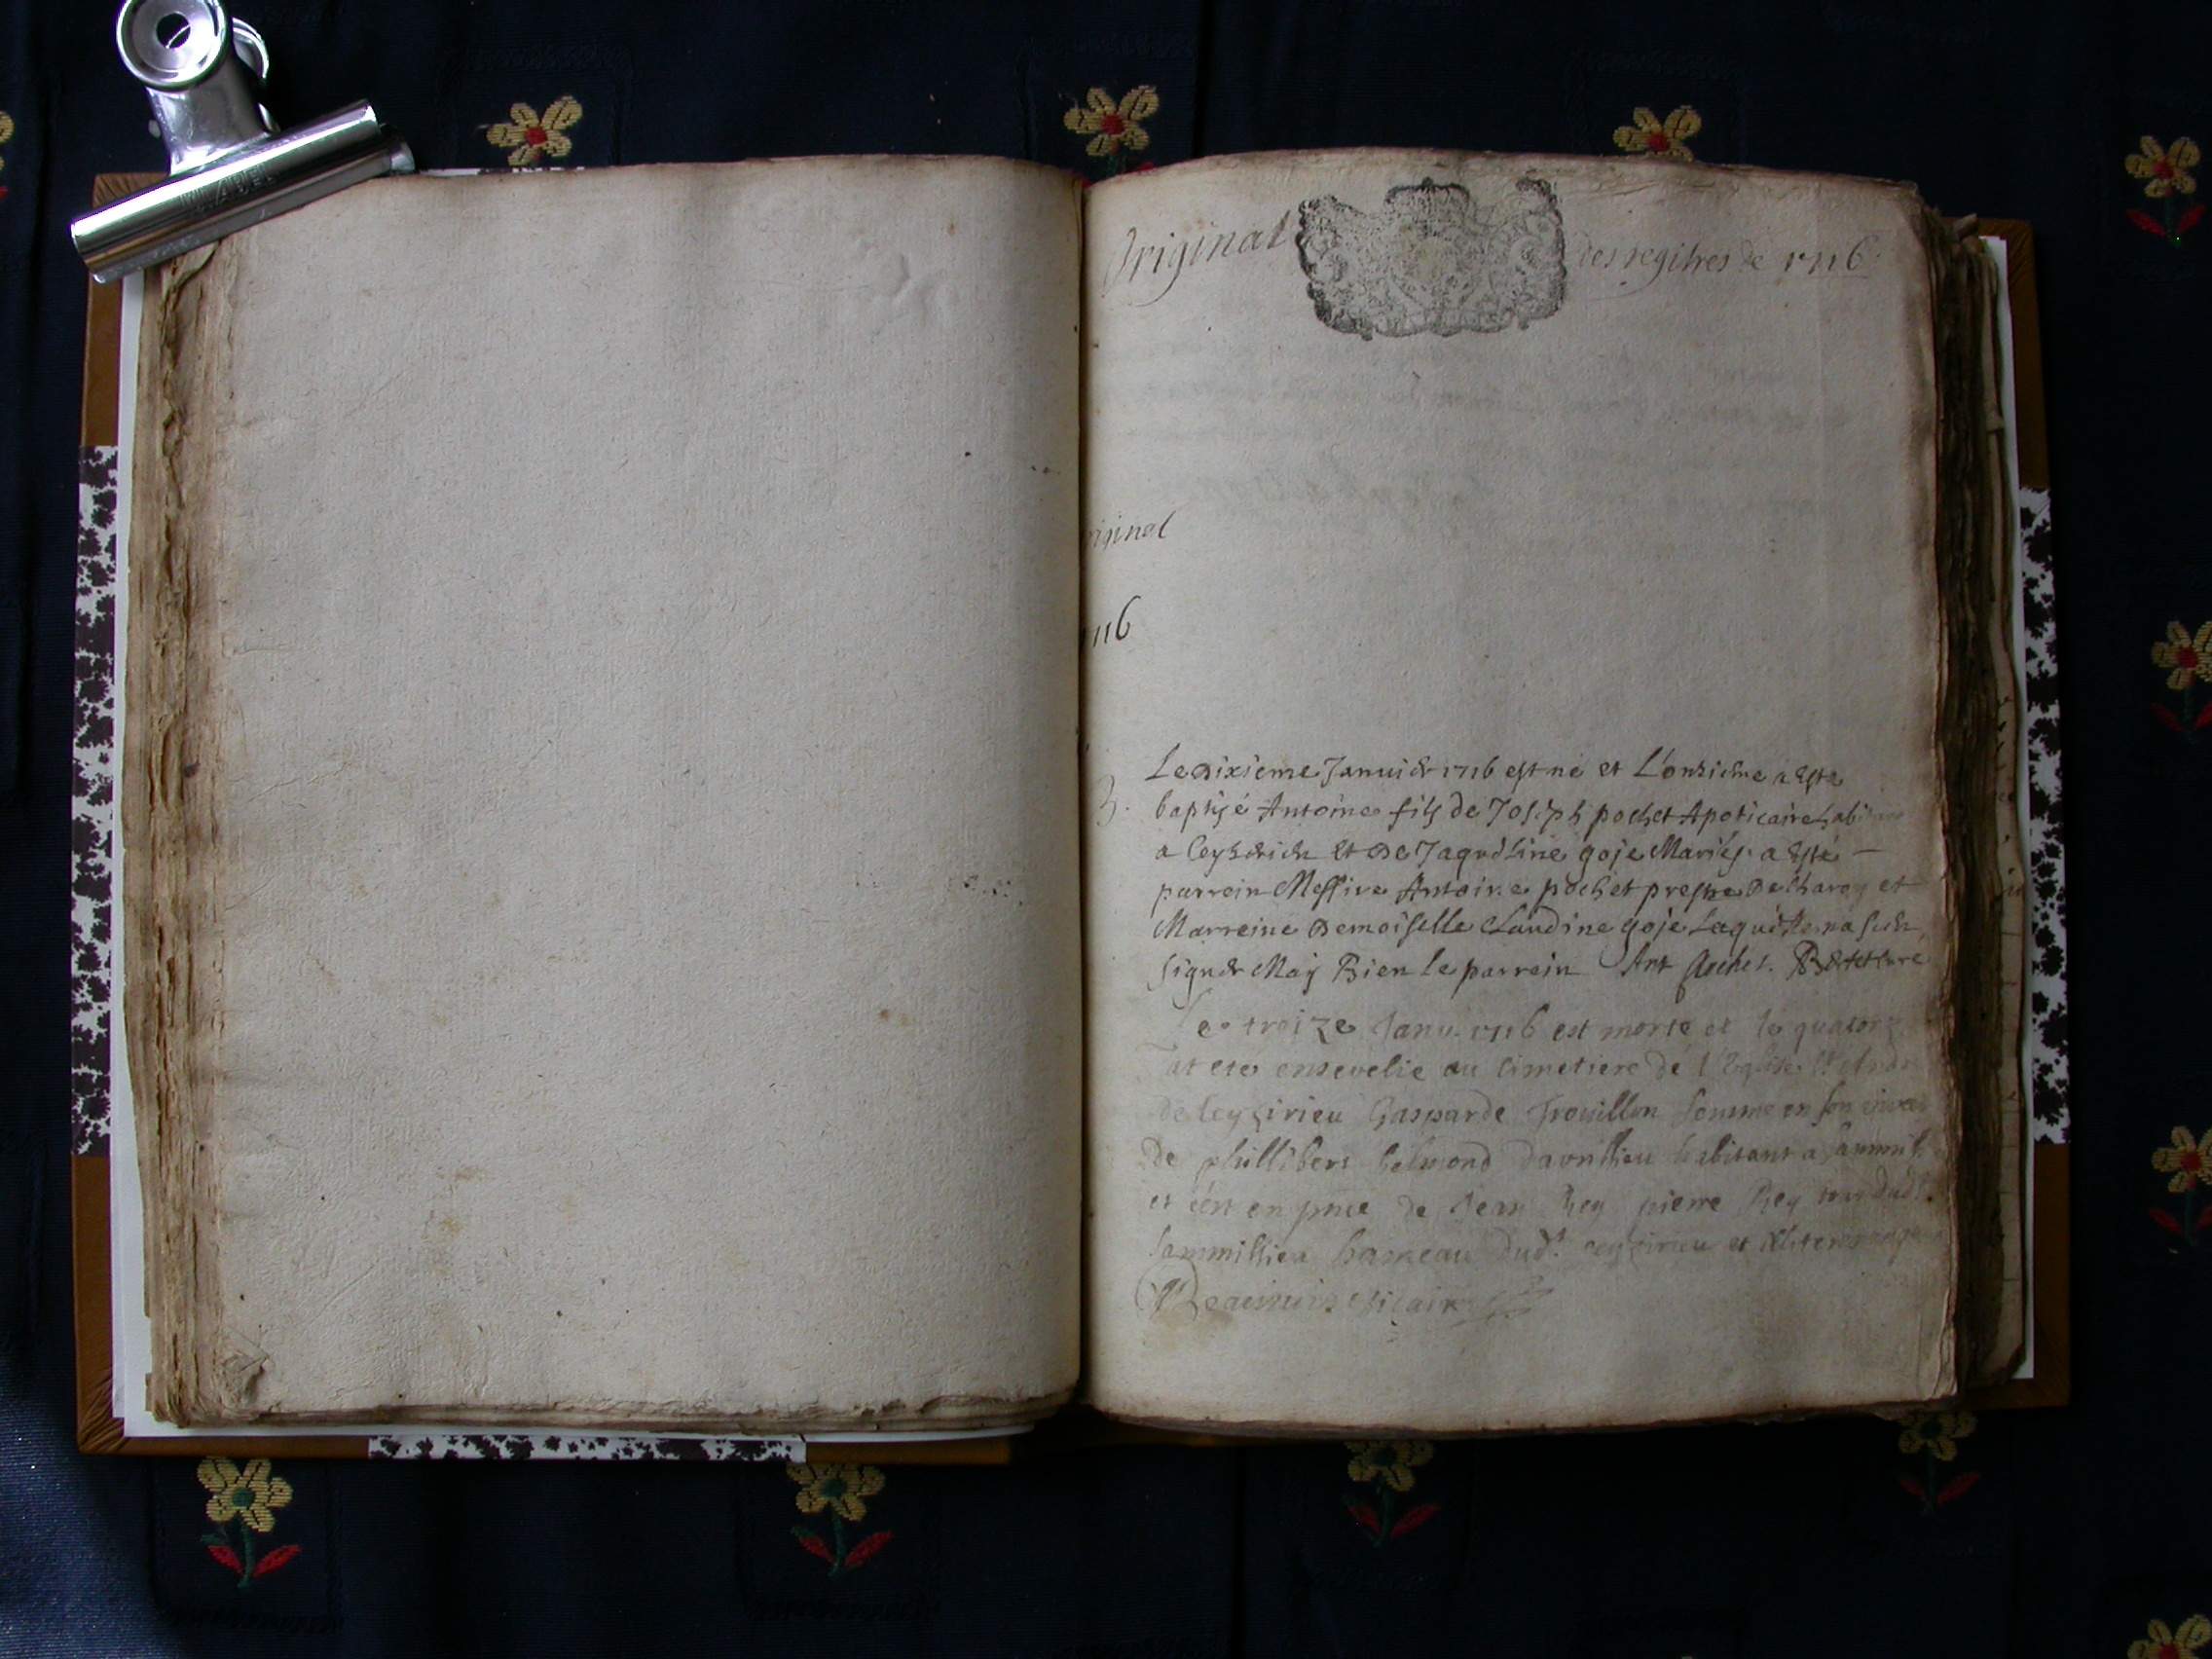 Original des regitres de 1716.
riginal
116
Le dixieme Januier 1716 est né et L'onzieme a esté
B. baptisé Antoine fils de Joseph pochet Apoticaire
a Ceyzerieu Et De Jaqueline goje Mariés a Esté
parrein Messire Antoine pochet prestre De et
Marreine Demoiselle Claudine goje Laquelle na sceu
signer Mais Bien le parrein Ant pochet.
Le treize Janv. 1716 est morte et le quatorz
at eté ensevelie au Cimetiere de l'Eglise St
de Ceyzirieu Gasparde Trouillon femme en son
de phillibert belmond habitant a
et cest en pnce de Jean Rey pierre Rey dud.
Sammillieu hameau dud.t ceyzirieu et
vicaire